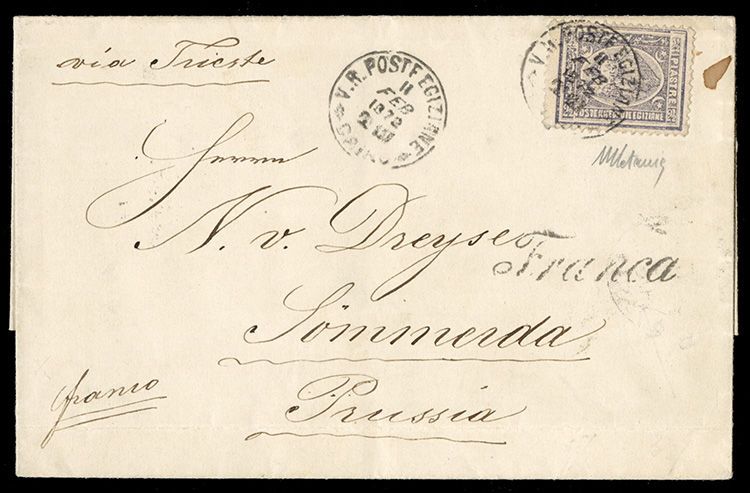 via Trieste
V. R. POSTE EGIZIANE
11
FEB
CAIRO
V. R. POSTE EGIZIANE
11
FEB
POSTE KHEDEUIE EGIZIANE
PIASTRE
Herrn
N. v. Dreyse
Franca
Sömmerda
franco
Prussia